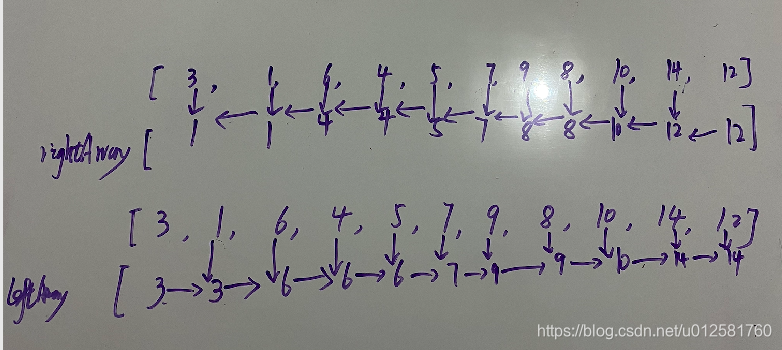 [ 3, 1, 6, 4, 5, 7, 9, 8, 10, 14, 12]
rightArray [ 1 1 4 4 5 7 8 8 10 12 12]
[ 3, 1, 6, 4, 5, 7, 9, 8, 10, 14, 12]
leftArray [ 3 3 6 6 6 7 9 9 10 14 14
https://blog.csdn.net/u012581760